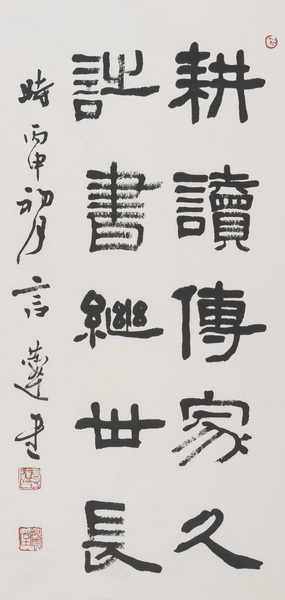 耕讀傳家久
詩書繼世長
時丙申初月言蓬書